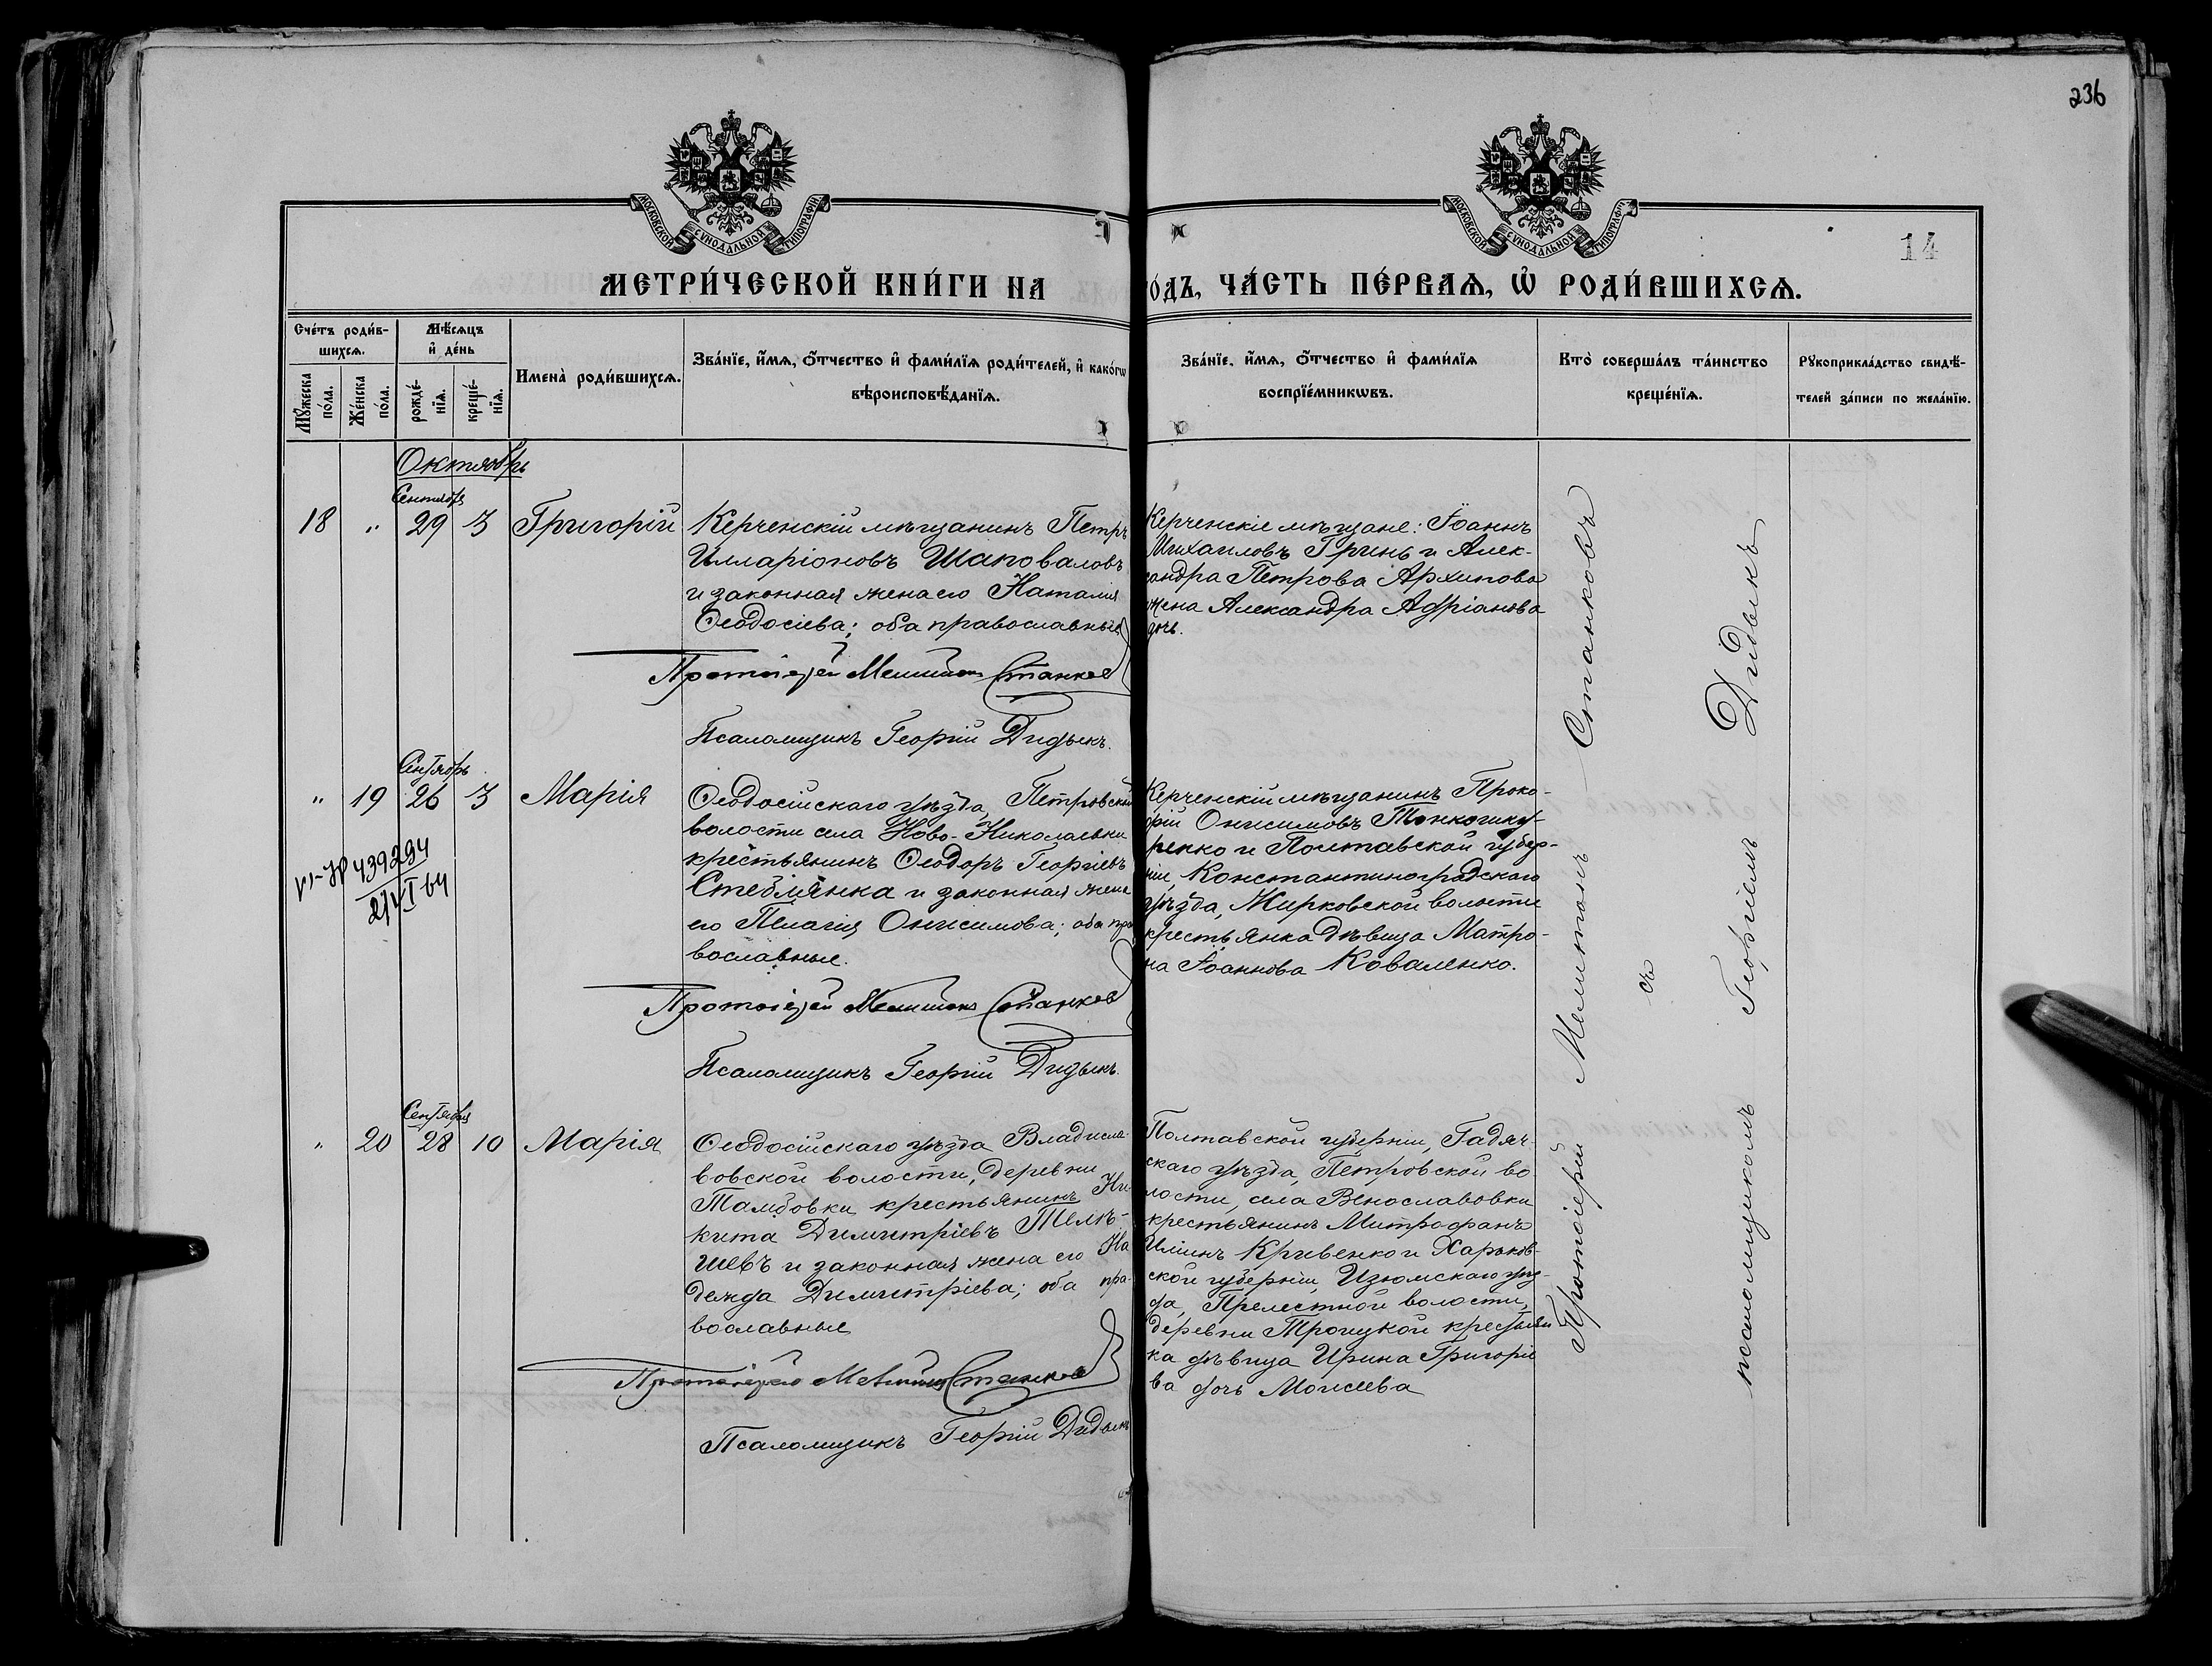 236
МОСКОВСКОЙ СУНОДАЛЬНОЙ ТИПОГРАФІИ
МОСКОВСКОЙ СУНОДАЛЬНОЙ ТИПОГРАФІИ
14
МЕТРИ́ЧЕСКОЙ КНИ́ГИ НА
О́ДЪ, ЧА́СТЬ ПЕ́РВАѦ, Ѡ҆ РОДИ́ВШИХСѦ.
Сче́тъ роди́в-
шихсѧ.
Мѣ́сѧцъ
и҆ де́нь
Мꙋ́жеска
по́ла.
Же́нска
по́ла.
рожде́-
нїѧ.
креще́-
нїѧ.
Имена̀ роди́вшихсѧ.
Зва́нїе, и҆́мѧ, ѻ҆́тчество и҆ фами́лїѧ роди́телей, и҆ како́гѡ
вѣроисповѣ́данїѧ.
Зва́нїе, и҆́мѧ, ѻ҆́тчество и҆ фами́лїѧ
воспрїе́мникѡвъ.
Кто̀ соверша́лъ та́инство
креще́нїѧ.
Рꙋкоприкла́дство свидѣ́-
телей за́писи по жела́нїю.
Октябрь
Сентября
18 " 29 3 Григорій
Керченскій мѣщанинъ Петръ
Илларіоновъ Шаповаловъ
и законная жена его Наталія
Ѳеодосіева; оба православные
Протоіерей Мелитонъ Станков
Псаломщикъ Георгій Дидыкъ.
Керченскіе мѣщане: Іоаннъ
Михаиловъ Гринь и Алек-
сандра Петрова Архипова
жена Александра Адріанова
дочь.
Сентябрь
" 19 26 3 Марія
Ѳеодосійскаго уѣзда, Петровской
волости села Ново-Николаевки
крестьянинъ Ѳеодоръ Георгіевъ
Стеблянка и законная жена
его Пелагія Онисимова; оба пра
вославные.
439294
Протоіерей Мелитонъ Станков
Псаломщикъ Георгій Дидыкъ.
Керченскій мѣщанинъ Проко-
фій Онисимовъ
ренко и Полтавской губер-
ніи, Константиноградскаго
уѣзда, Жирковской волости
крестьянка дѣвица Матро-
на Іоаннова Коваленко.
Сентября
" 20 28 10 Марія
Ѳеодосійскаго уѣзда Владисла-
вовской волости, деревни
Тамбовки крестьянинъ Ни-
кита Димитріевъ Телѣ-
шевъ и законная жена его На
дежда Димитріева; оба пра-
вославные
Протоіерей Мелитонъ Станков
Псаломщикъ Георгій Дидыкъ
Полтавской губерніи, Гадяч-
скаго уѣзда, Петровской во
лости, села Венославовки
крестьянинъ Митрофанъ
Иліинъ Кривенко и Харьков-
ской губерніи, Изюмскаго уѣз-
да, Прелестной волости,
деревни Троицкой крестьян
ка дѣвица Ирина Григоріе
ва дочь Моисеева
Протоіерей Мелитонъ Станковъ
съ
псаломщикомъ Георгіемъ Дидыкъ